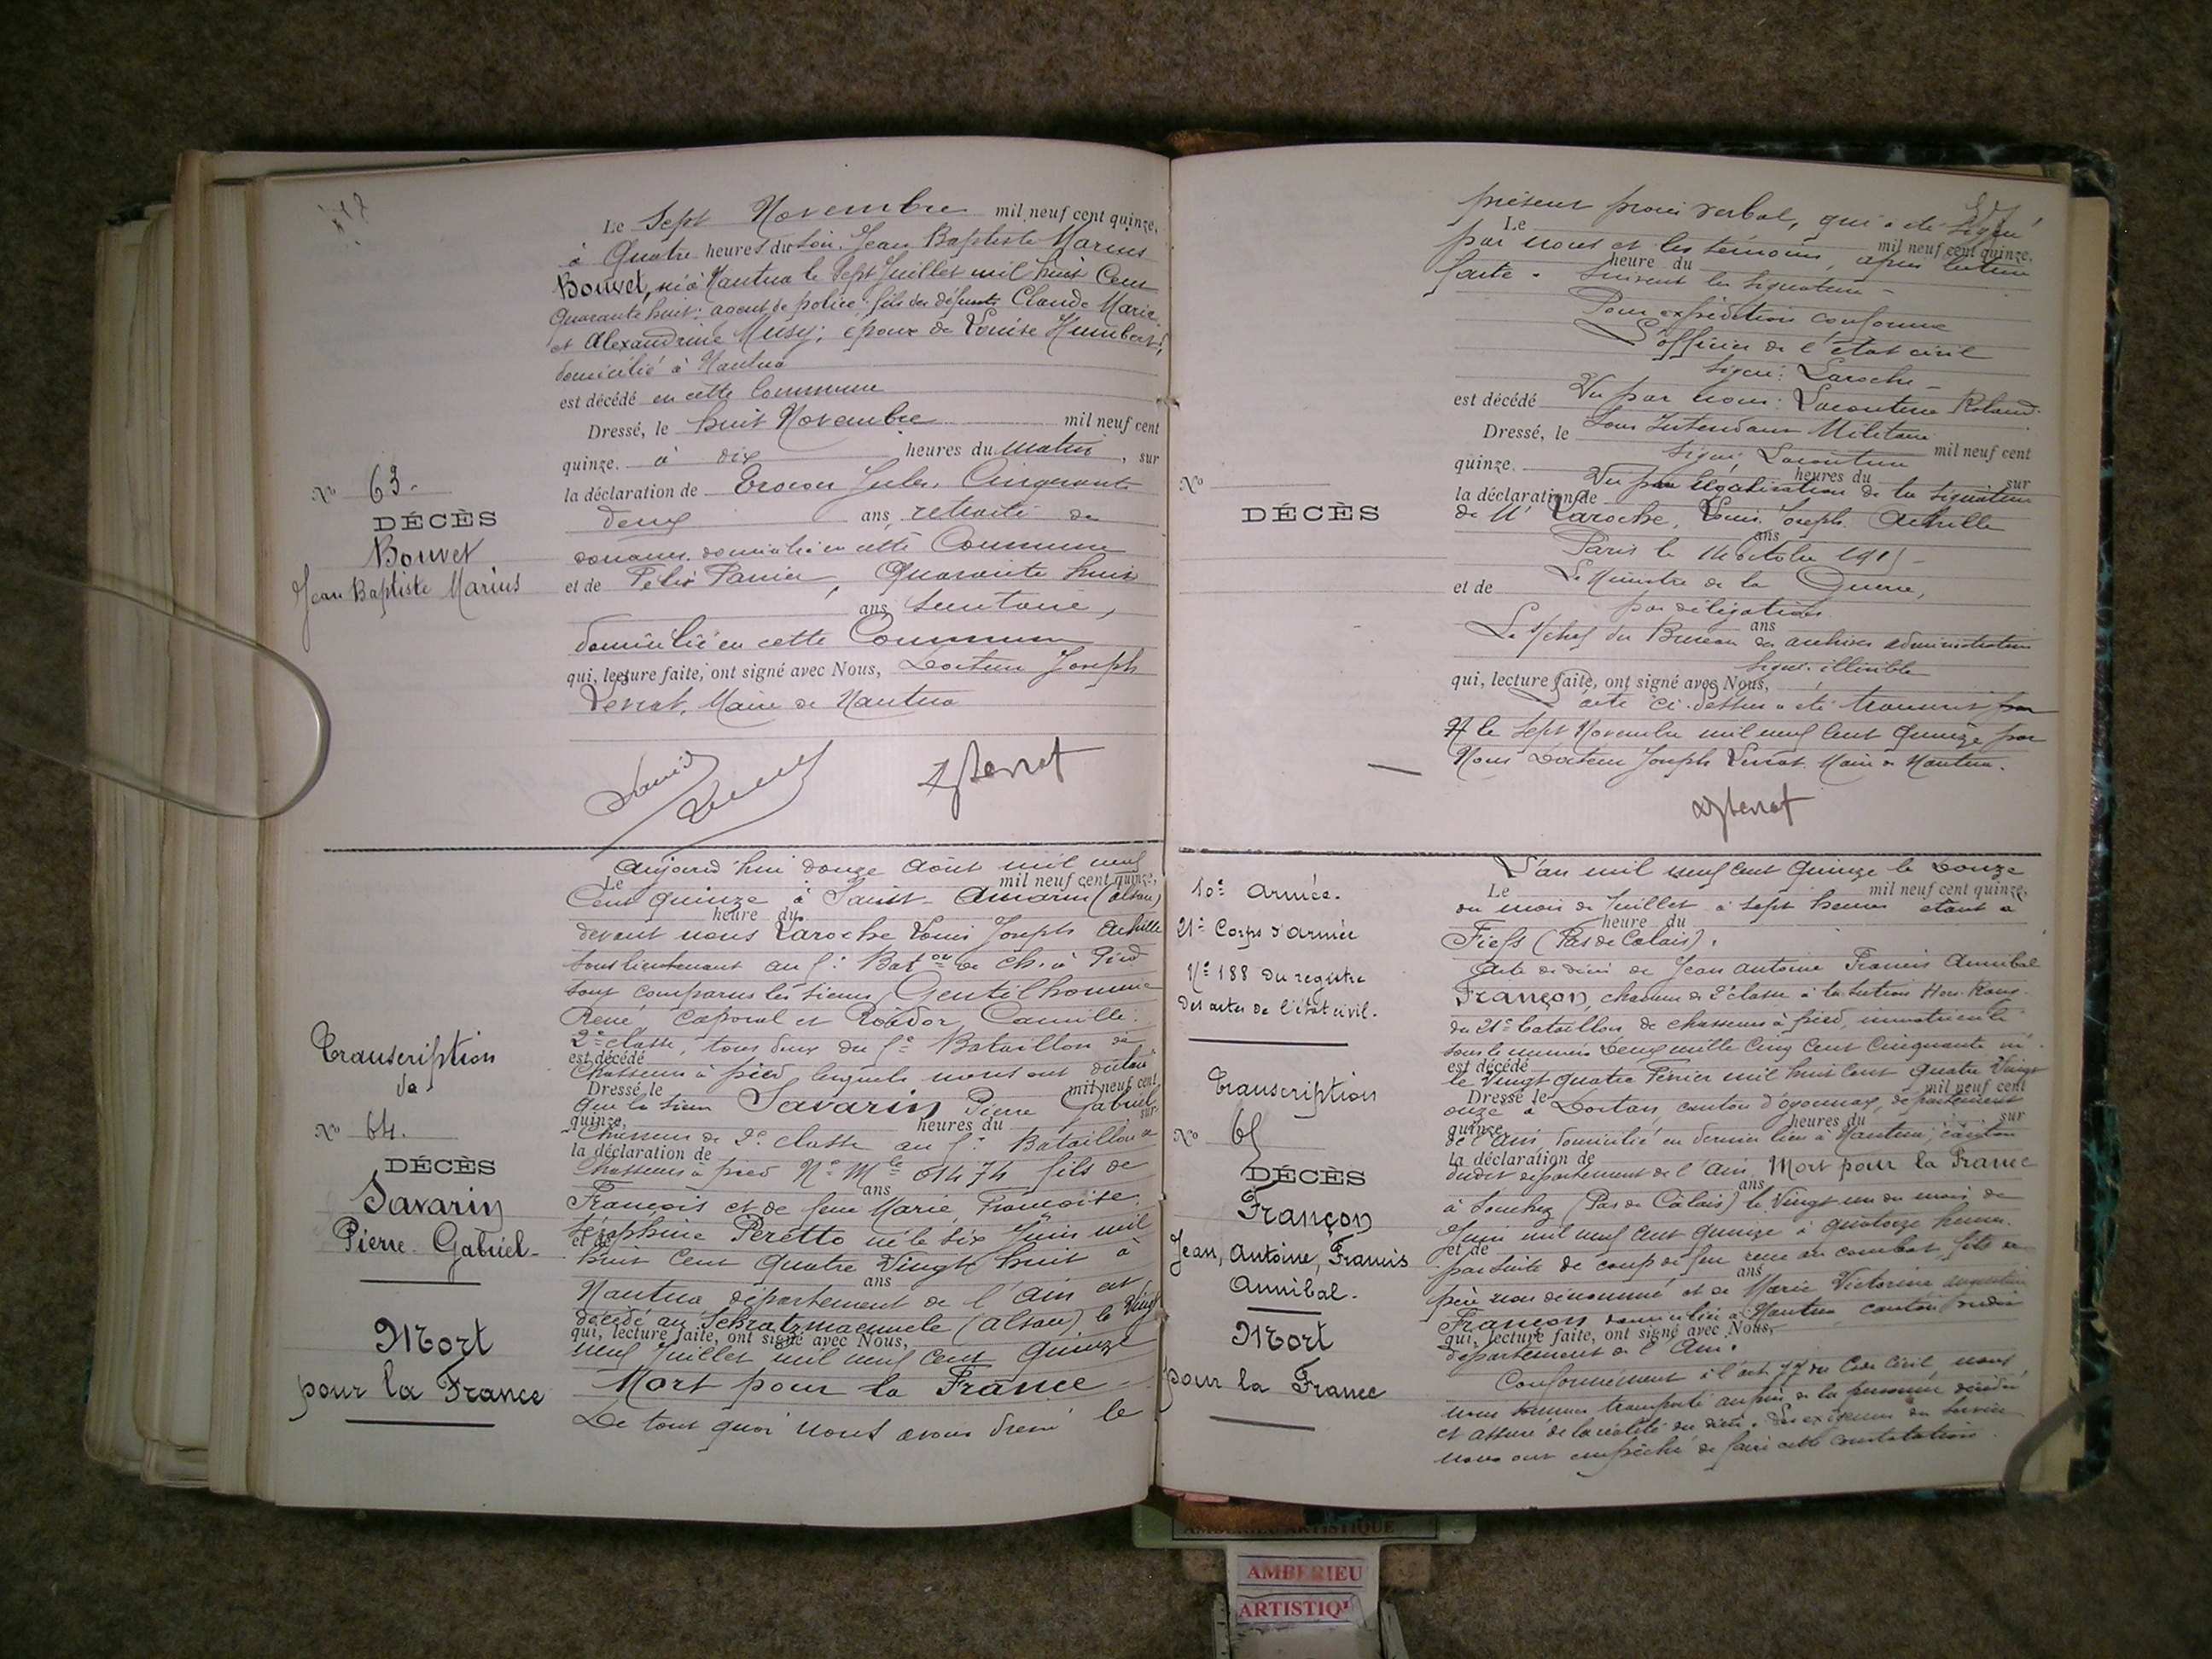 Le Sept Novembre mil neuf cent quinze,
à Quatre heures du Soir. Jean Baptiste Marius
Bouvet, né à Nantua le Sept Juillet mil huit Cent
Quarante huit: agent de police. fils des défunts Claude Marie
et Alexandrine Musy; époux de Louise Humbert;
domicilié à Nantua
est décédé en cette Commune
Dressé, le huit Novembre mil neuf cent
quinze. à dix heures du matin, sur
la déclaration de Jules, Cinquante
deux ans, retraité de
douanes. domicilié en cette Commune
et de Félix Panier, Quarante huit
ans,
domicilié en cette Commune
qui, lecture faite, ont signé avec Nous, Docteur Joseph
Maire de Nantua
No 63.
DÉCÈS
Bouvet
Jean Baptiste Marius
Aujourd'hui douze Août mil neuf
Le mil neuf cent quinze,
Cent quinze à Saint-Amarin (alsace)
heure du
devant nous Laroche Louis Joseph Achille
Sous lieutenant au 5e Baton de Ch. à Pied
sont comparus les sieurs Gentilhomme
René, Caporal et Camille.
2e classe, tous deux du 5e Bataillon de
est décédé
Chasseurs à pied lesquels nous ont déclaré
Dressé le mil neuf cent
que le sieur Savarin Pierre Gabriel
quinze, heures du sur
Chasseur de 2e classe au 5e Bataillon de
la déclaration de
Chasseurs à pied No Mle 01474 fils de
ans
François et de feue Marie Françoise
Séraphine Peretto né le six Juin mil
et de
huit Cent Quatre Vingt huit à
ans
Nantua département de l'Ain est
décédé au Schratzmaennele (alsace) le Vingt
qui, lecture faite, ont signé avec Nous,
neuf Juillet mil neuf Cent Quinze
Mort pour la France
De tout quoi nous avons dressé le
Transcription
de
No 64.
DÉCÈS
Savarin
Pierre Gabriel-
Mort
pour la France
présent procès verbal, qui a été Signé
Le mil neuf cent quinze,
par nous et les témoins, après lecture
heure du
faite. Suivent les signatures -
Pour expédition conforme
L'officier de l'état civil
Signé: Laroche -
est décédé Vu par nous: Lacouture Roland
Dressé, le Sous Intendant Militaire mil neuf cent
quinze. Signé, Lacouture heures du sur
Vu pour légalisation de la Signature
la déclaration de
de Mr Laroche, Louis Joseph Achille
ans
Paris le 14 octobre 1915 -
et de Le Ministre de la Guerre,
par délégation
ans
Le chef du Bureau des archives administratives
Signé: illisible
qui, lecture faite, ont signé avec Nous,
L'acte ci-dessus a été transcrit
le Sept Novembre mil neuf Cent Quinze par
Nous Docteur Joseph Maire de Nantua.
No
DÉCÈS
L'an mil neuf cent Quinze le Douze
Le mil neuf cent quinze,
du mois de Juillet à sept heures étant à
heure du
Fiefs (Pas de Calais).
Acte de décès de Jean Antoine Francis Annibal
Françon, chasseur de 2e classe à la Section Hors Rang
du 21e bataillon de chasseurs à pied, immatriculé
sous le numéro Deux mille Cinq Cent Cinquante né
est décédé
le Vingt quatre Février mil huit Cent Quatre Vingt
Dressé le mil neuf cent
onze à Dortan, canton d'oyonnax, département
quinze, heures du sur
de l'Ain, domicilié en dernier lieu à Nantua, canton
la déclaration de
dudit département de l'Ain. Mort pour la France
ans
à Souchez (Pas de Calais) le Vingt un du mois de
Juin mil neuf cent quinze à quatorze heures.
et de
par suite de coup de feu reçu au combat, fils de
ans
père non dénommé et de Marie Victorine
Françon domiciliée à Nantua, canton dudit
qui, lecture faite, ont signé avec Nous,
département de l'Ain.
Conformément à l'art. 77 du Code Civil nous
nous sommes transporté auprès de la personne décédée
et assuré de la réalité du décès. Les exigences du Service
nous ont empêché de faire cette constatation
10e Armée.
21e Corps d'Armée
No 188 du registre
des actes de l'état civil.
Transcription
No 65
DÉCÈS
Françon
Jean, Antoine, Francis
Annibal.
Mort
pour la France
AMBERIEU ARTISTIQUE
AMBERIEU
ARTISTIQ